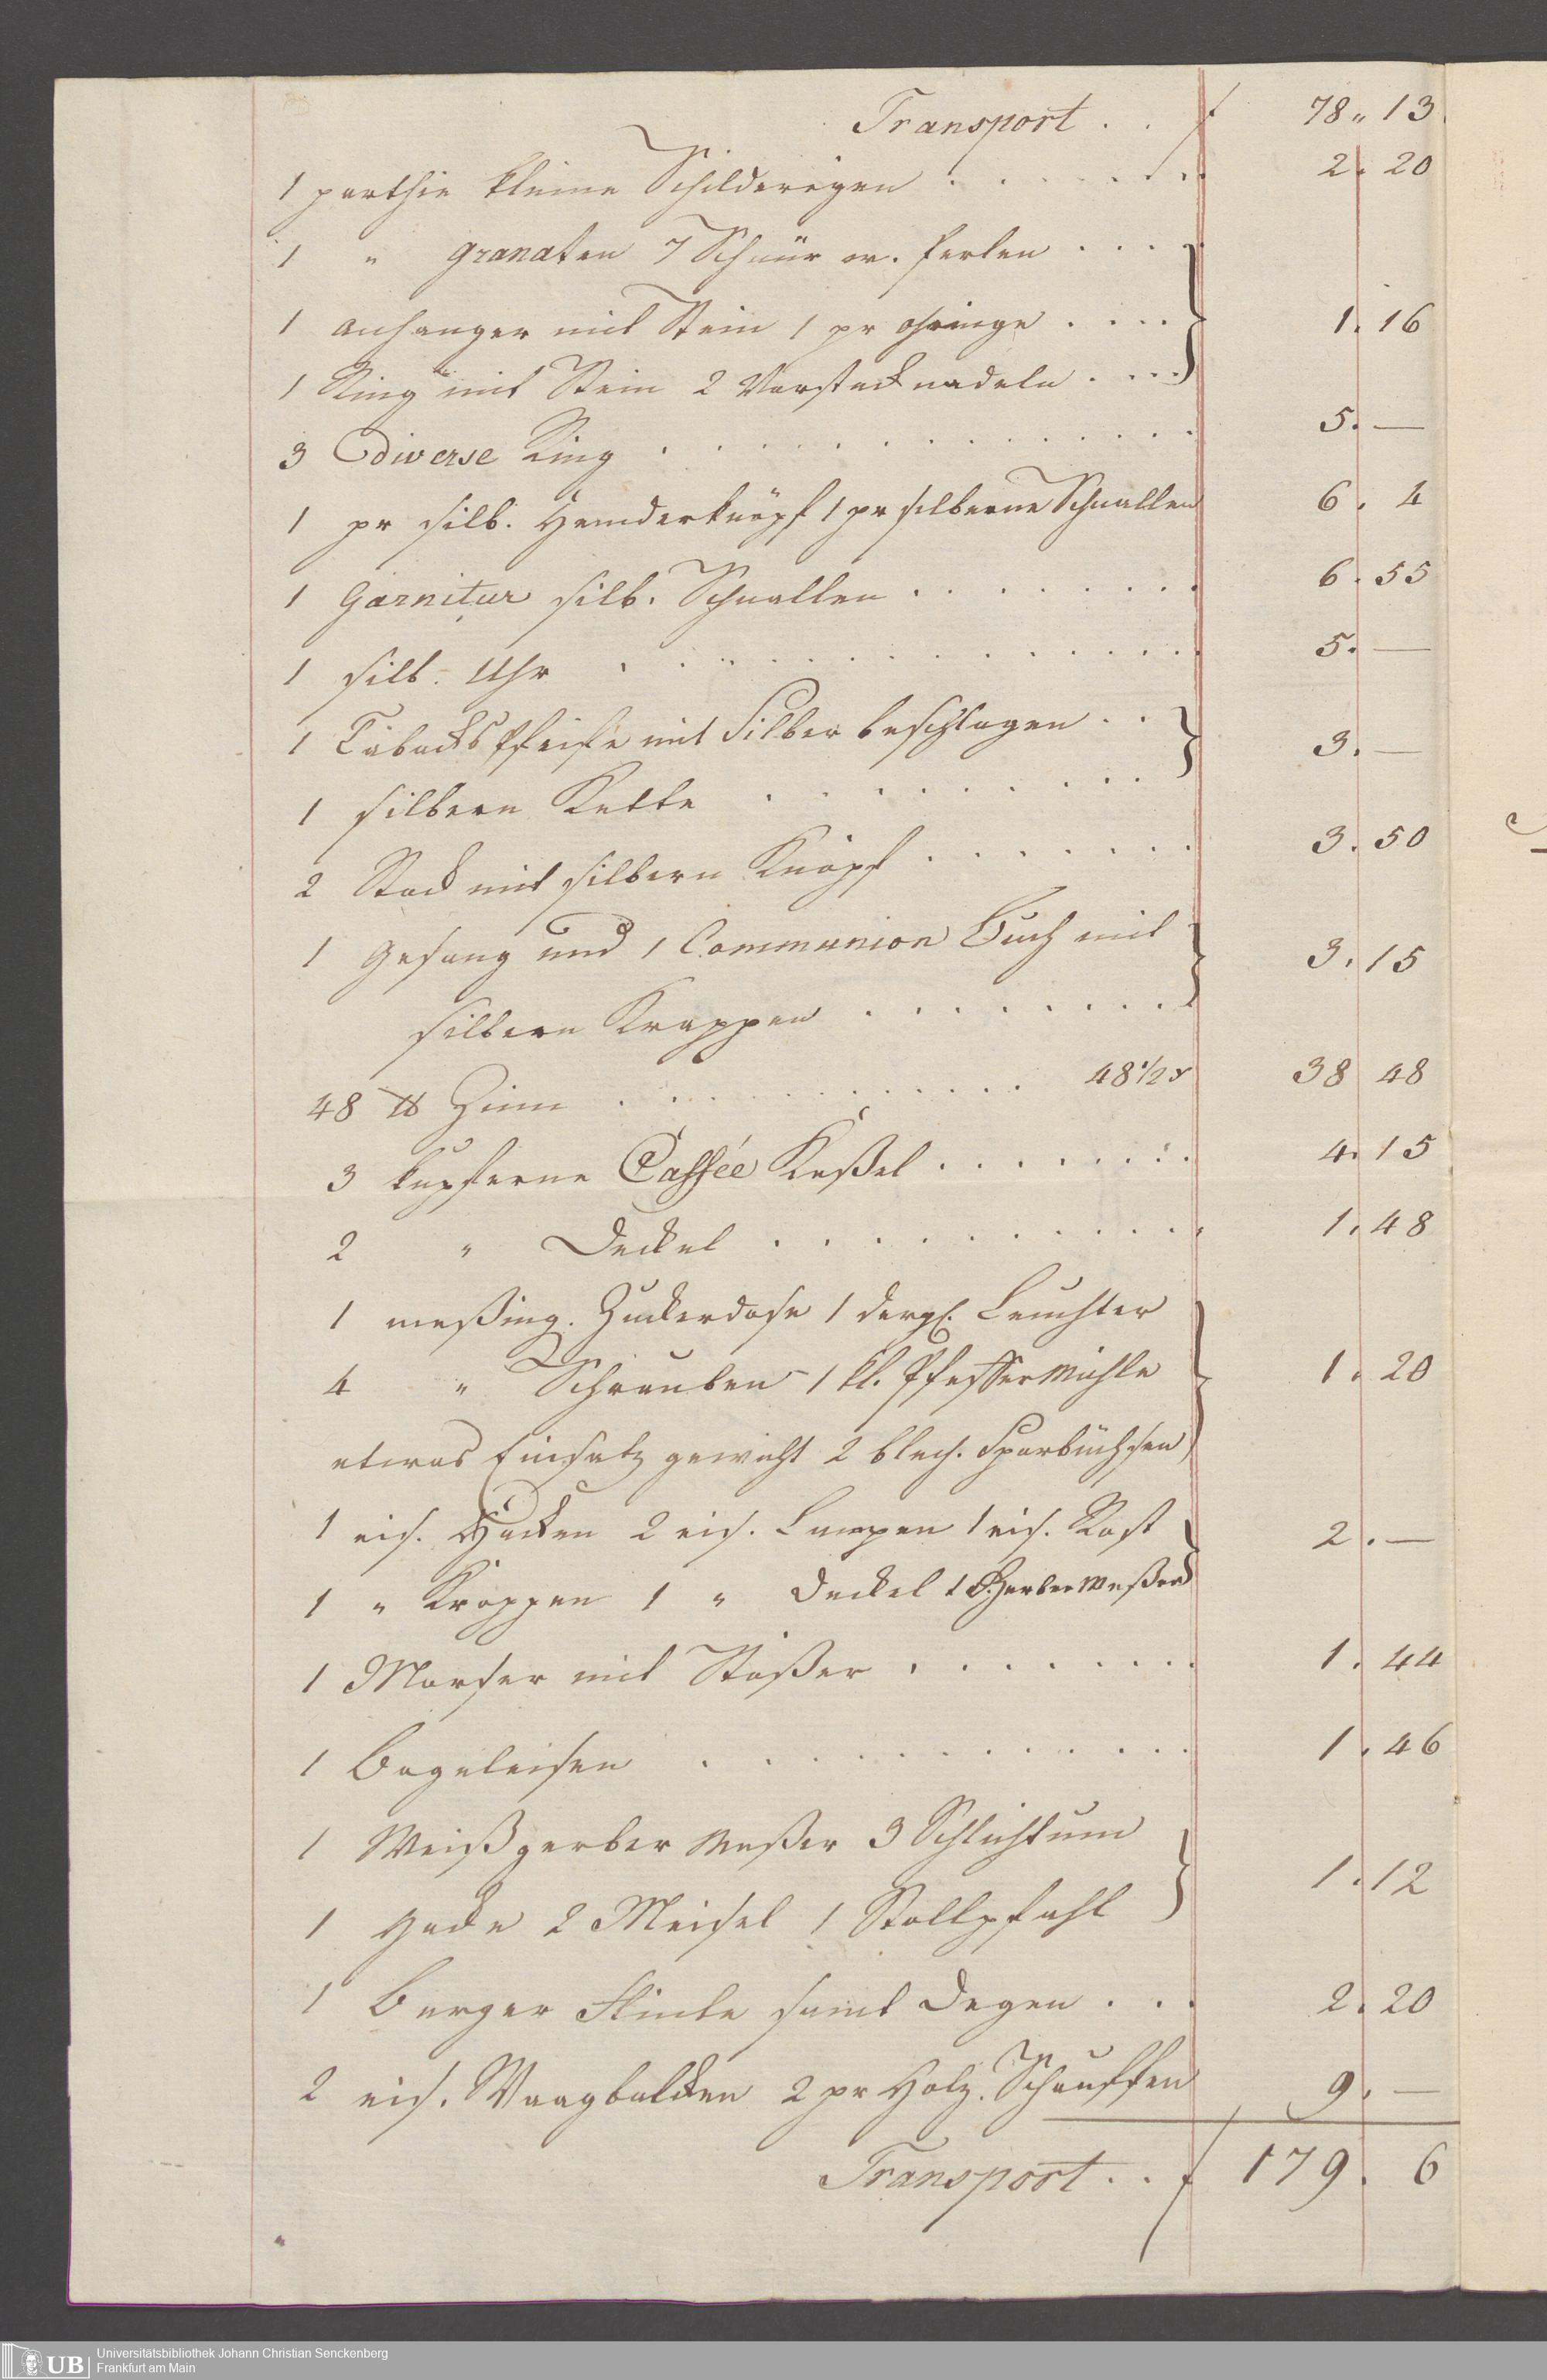 Transport . . f 78 „ 13
1 parthie kleine Schildereyen . . . . . . 2. 20
1 „ granaten 7 Schnür w. Perlen . . . .
1 anhanger mit Stein 1 pr ohringe . . . . 1. 16
1 Ring mit Stein 2 Vorstecknadeln . . . .
3 diverse Ring . . . . . . . . . . 5. —
1 pr silb. Hemderknöpf 1 pr silberne Schnallen 6. 4
1 Garnitur silb. Schnallen . . . . . . 6. 55
1 silb. Uhr . . . . . . . . . . 5. —
1 Tabacks Pfeife mit Silber beschlagen . .
1 silbern Kette . . . . . . . . 3. —
2 Stock mit silbern Knöpf . . . . . . 3. 50
1 Gesang und 1 Communion Buch mit
silbern Krappen . . . . . . . 3. 15
48 ℔ Zinn . . . . . . . . 48 1/2 38 48
3 kupferne Caffée Keßel . . . . . . . 4. 15
2 „ Deckel . . . . . . . . . 1. 48
1 meßing. Zuckerdose 1 dergl. Leuchter
4 „ Schrauben 1 kl. Pfeffer Mühle 1. 20
etwas Einsatz gewicht 2 blech. Sparbüchsen
1 eis. Hacken 2 eis. Lampen 1 eis. Rost 2. —
1 „ Kroppen 1 „ Deckel 1 Gerber Meßer
1 Morser mit Stößer . . . . . . 1. 44
1 Bögeleisen . . . . . . . . . 1. 46
1 Weißgerber Meßer 3 Schlichtum
1 Hacke 2 Meisel 1 Stollpfahl 1. 12
1 Burger Flinte samt Degen . . . 2. 20
2 eis. Waagbalcken 2 pr Holz. Schauffen 9. —
Transport . . f 179. 6
UB
Universitätsbibliothek Johann Christian Senckenberg
Frankfurt am Main